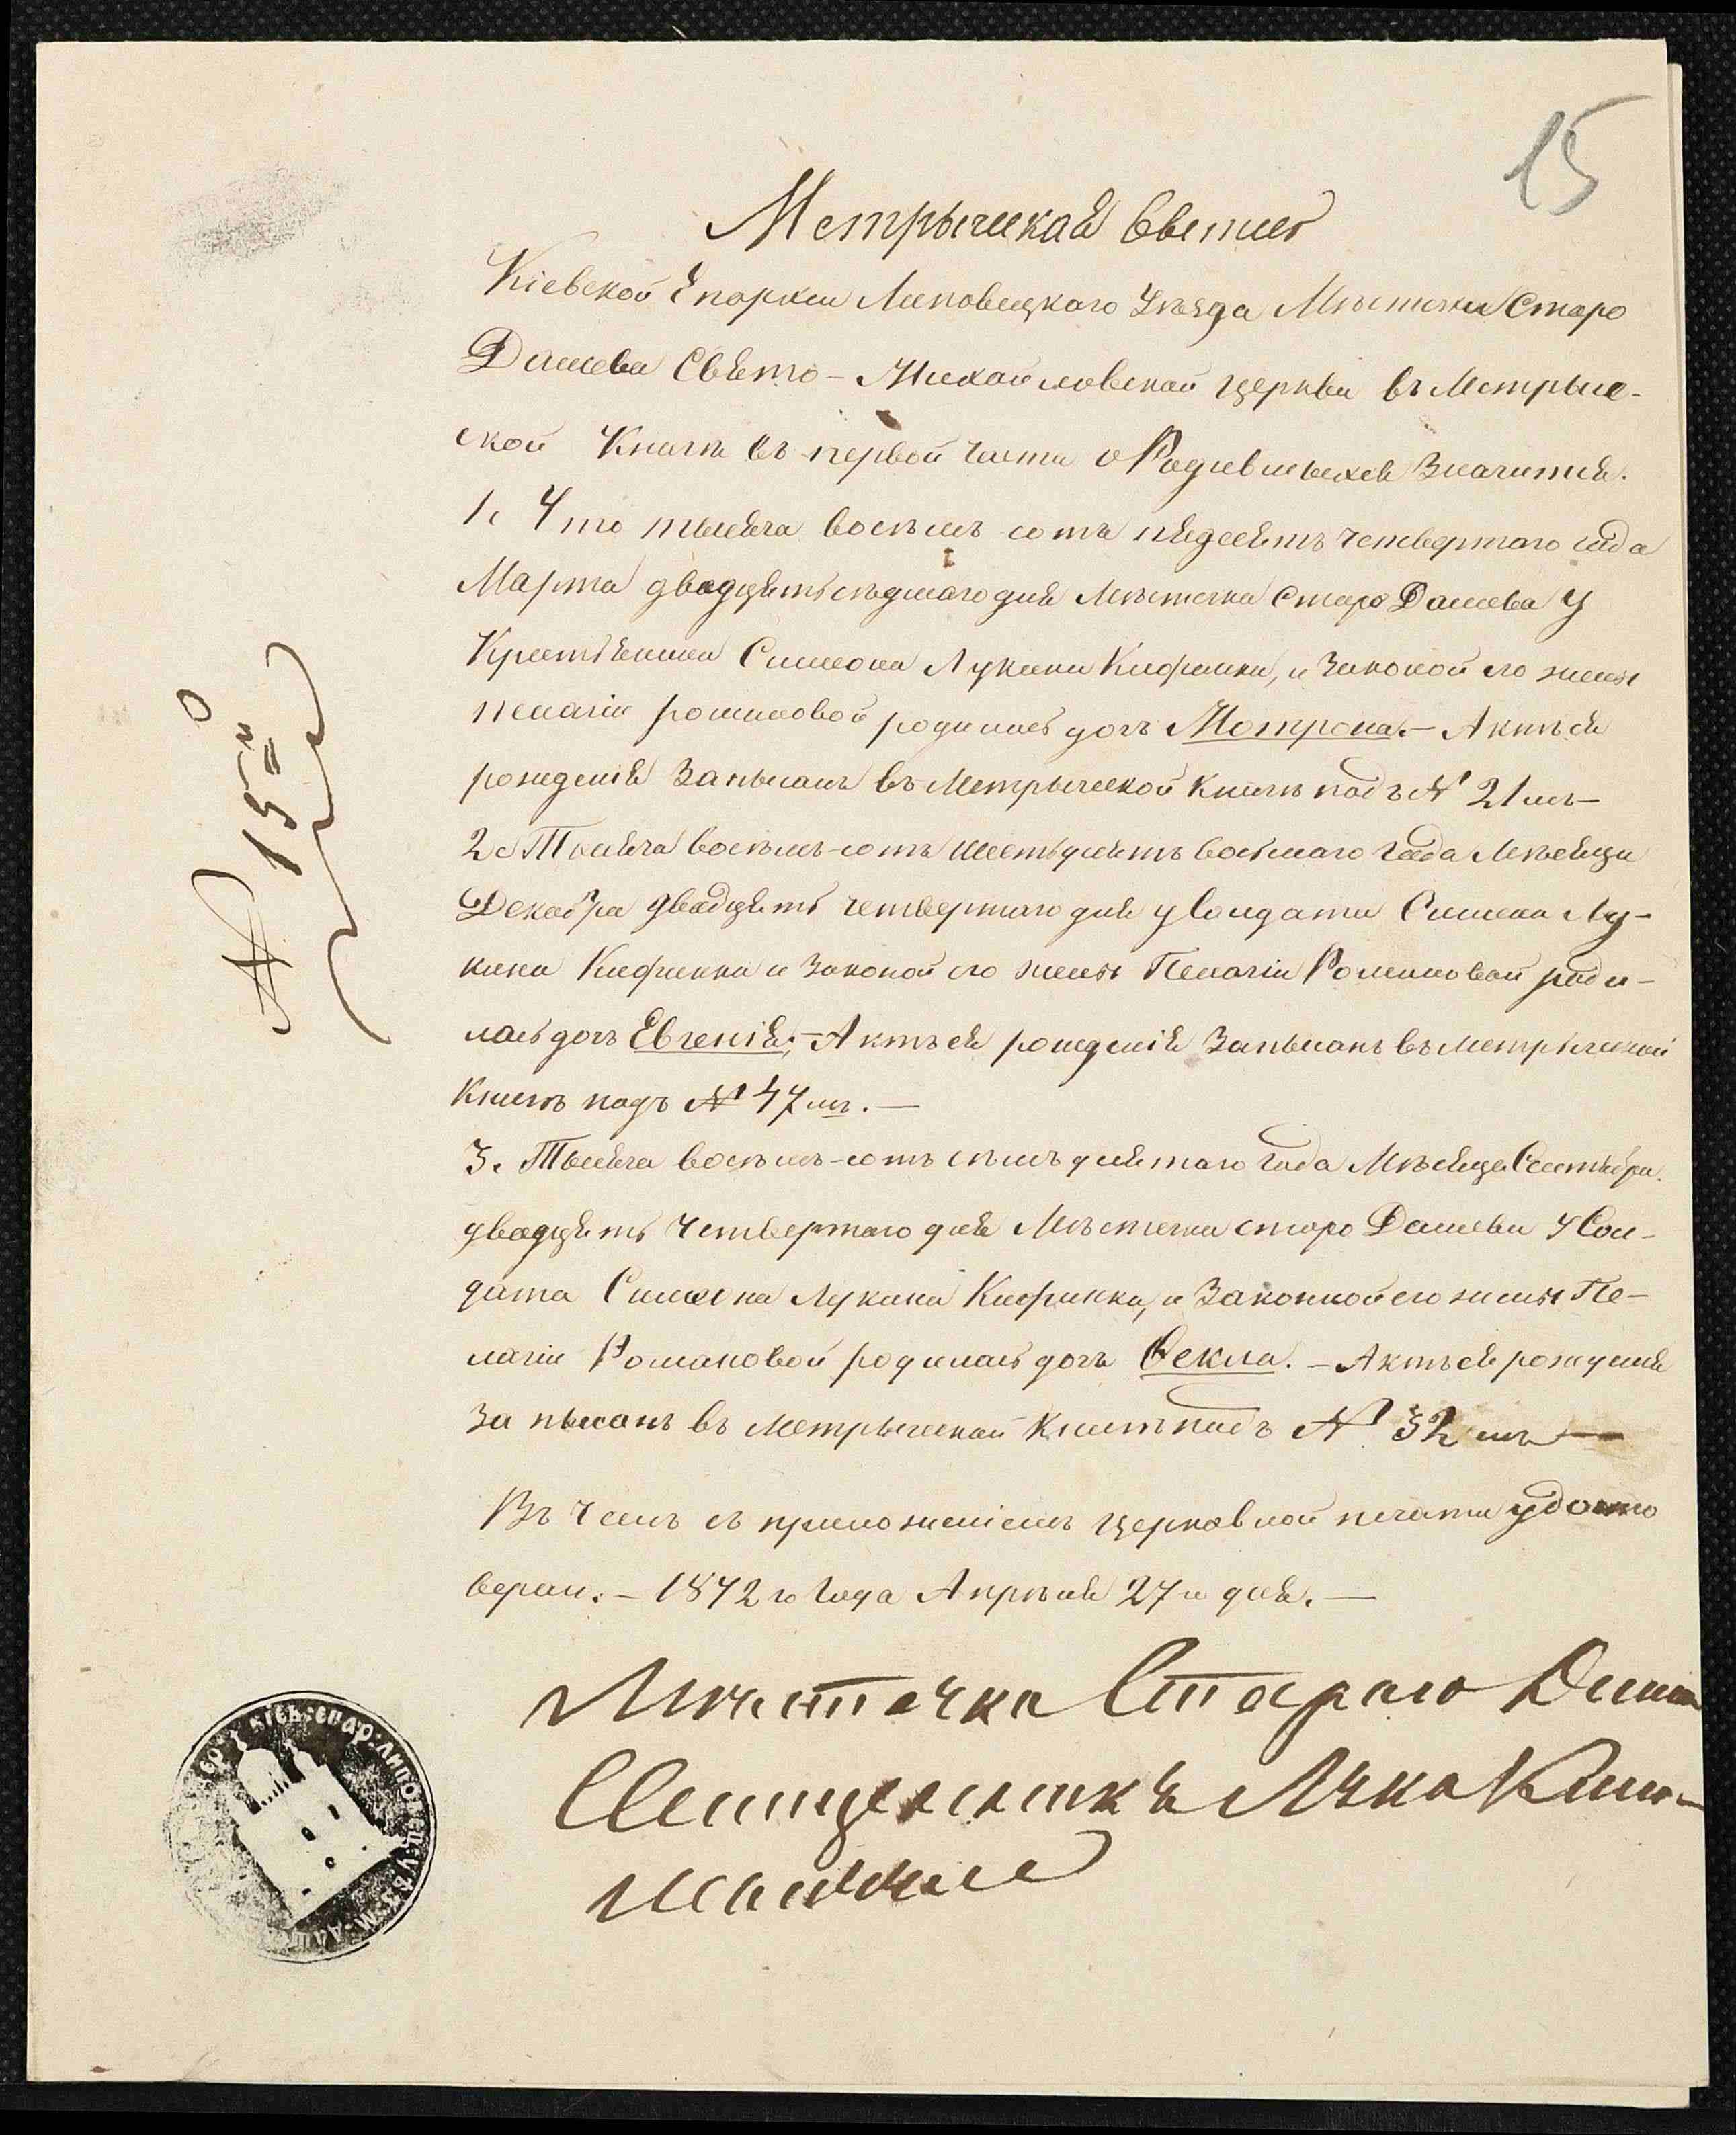 15
Метрыческая Светия
Кіевской Епархіи Липовецкаго Уъзда Мъстечка Старо
Дашева Свято-Михайловской церкви въ Метрыче-
ской Книгъ въ первой части о Родившыхся Значится.
1. Что тысяча восъмъ сотъ пядесятъ четвертаго года
Марта двадцять съдмаго дня Мъстечка Старо Дашева У
Крестянина Симеона Лукина Кифинка, и Законой его жены
Пелагіи романовой родилась дочъ Мотрона. - Актъ ея
рожденія Запысанъ въ Метрыческой Книгъ подъ № 21мъ -
2. Тысяча восъмъ-сотъ шестьдсятъ восьмаго Года Мъсяца
Декабра двадцять четвертаго дня у Солдата Симеона Лу-
кина Кифинка и Законой его жены Пелагіи Романовой роди-
лась дочъ Евгенія; - Актъ ея рожденія Запысанъ въ Метрыческой
Книгъ подъ № 47мъ. -
3. Тысяча восъмъ-сотъ съмъдсятаго Года Мъсяца Сентября.
двадцять Четвертаго дня Мъстечка старо Дашева У Сол-
дата Симеона Лукина Кифинка, и Законной его жены Пе-
лагіи Романовой родилась дочъ Ѳекла. - Актъ ея рожденія
Запысанъ въ Метрыческой Книгъ подъ № 32мъ -
Въ Чемъ съ приложеніемъ Церковной печати удосто
веран: - 1872го Года Апръля 27го дня. -
Мъстечка Стараго Даше
Священникъ Лука
№ 15
КІЕВ: ЕПАР: ЛИПОВЕЦ: УѢЗ: М: ДАШ